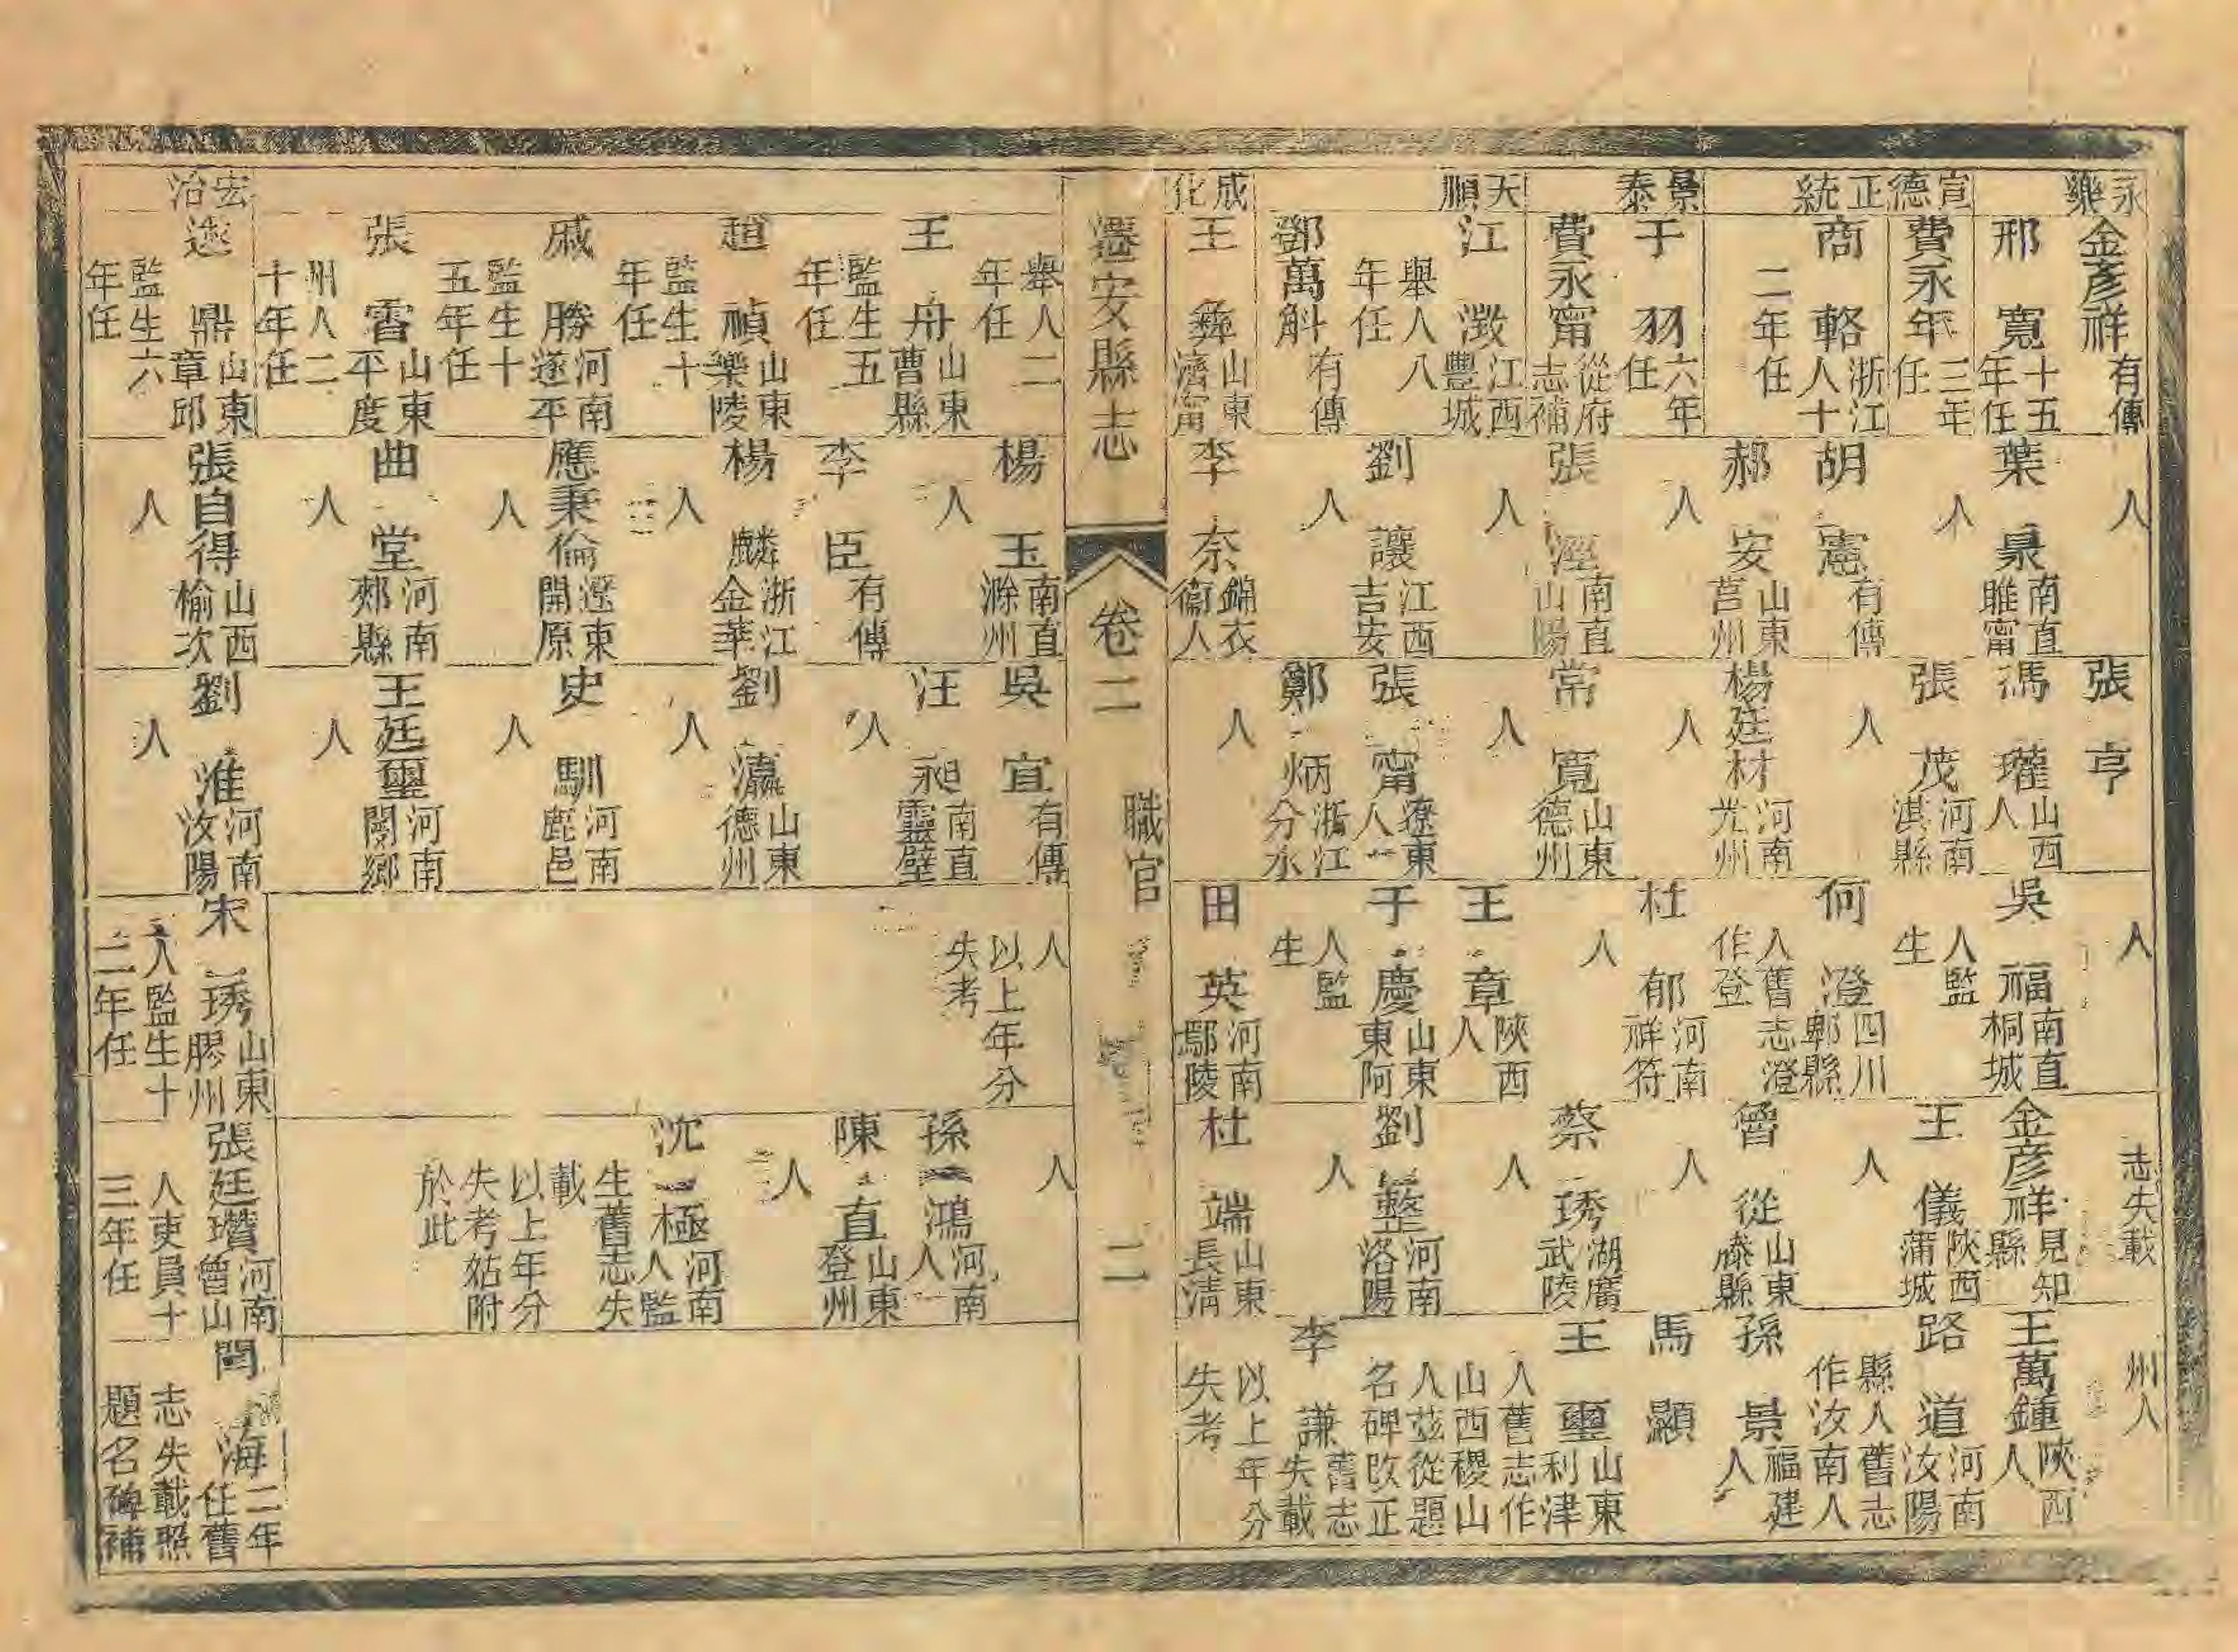 永樂
宣德
正統
景泰
天順
成化
金彥祥 有傳
邢寬 十五年任
費永年 三年任
商輅 浙江人十二年任
于羽 六年任
費永甯 從府志補
江澂 江西豐城舉人八年任
鄧萬斛 有傳
王彝 山東濟甯
人
葉泉 南直睢甯人
胡憲 有傳
郝安 山東莒州人
張涇 南直山陽人
劉讓 江西吉安人
李奈 錦衣衞人
張亨
馮瓘 山西人
張茂 河南淇縣人
楊廷材 河南光州人
常寬 山東德州人
張甯 遼東人
鄭炳 浙江分水人
人
吳福 南直桐城人監生
何澄 四川郫縣人舊志澄作登
杜郁 河南祥符人
王章 陜西人
于慶 山東東阿人監生
田英 河南鄢陵
志失載
金彥祥 見知縣
王儀 陜西蒲城人
曾從 山東滕縣人
蔡琇 湖廣武陵人
劉整 河南洛陽人
杜端 山東長淸
州人
王萬鍾 陜西人
路道 河南汝陽縣人舊志作汝南人
孫景 福建人
馬顯
王璽 山東利津人舊志作山西稷山人茲從題名碑改正
李謙 舊志失載
以上年分失考
遷安縣志 卷二 職官 二
宏治
舉人二年任
王舟 山東曹縣監生五年任
趙禎 山東樂陵監生十年任
戚勝 河南遂平監生十五年任
張雷 山東平度州人二十年任
逯鼎 山東章邱監生六年任
楊玉 南直滁州人
李臣 有傳
楊麟 浙江金華人
應秉倫 遼東開原人
曲堂 河南郟縣人
張自得 山西榆次人
吳宜 有傳
汪昶 南直靈壁人
劉瀛 山東德州人
史馴 河南鹿邑人
王廷璽 河南閿鄉人
劉淮 河南汝陽人
人
以上年分失考
宋琇 山東膠州人監生十二年任
人
孫鴻 河南人
陳直 山東登州人
沈極 河南人監生舊志失載
以上年分失考姑附於此
張廷瓚 河南魯山人吏員十三年任
閆海 二年任舊志失載照題名碑補